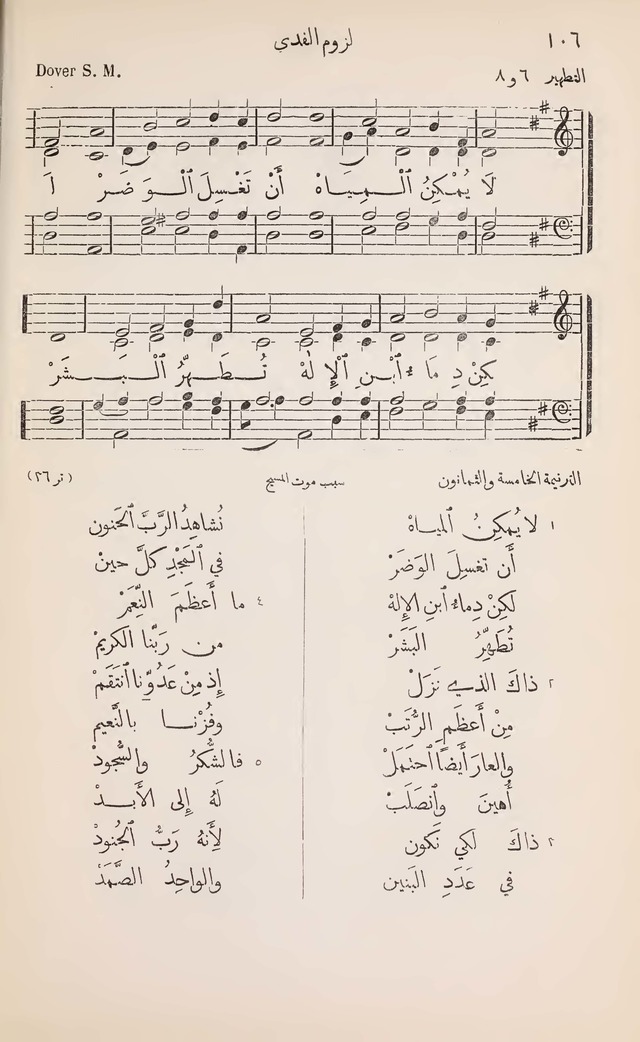 ١٠٦
لزوم الفدي
التطهير ٦ و ٨
Dover S. M.
لَا يُمْكِنُ ٱلْـمِيـاهْ أَنْ تَغْسِلَ ٱلْـوَضَرْ لَـ
كِنْ دِمَاءُ ٱبْنِ ٱلْإِلٰهْ تُـطَـهِّرُ ٱلْـبَـشَـرْ
الترنيمة الخامسة والثمانون
سبب موت المسيح
(تر ٢٦)
١ لا يُمكِنُ ٱلمياهْ
أَن تغسِلَ الوَضَرْ
لكِنْ دِماءُ ٱبنِ الإِلهْ
تُطَهِّرُ البَشَرْ
٢ ذاكَ الذي نَزَلْ
مِنْ أَعظَمِ الرُّتَبْ
والعارَ أَيضًا ٱحتَمَلْ
أُهينَ وٱنصَلَبْ
٣ ذاكَ لكي نَكون
في عَدَدِ البَنين
نُشاهِدُ الرَّبَّ ٱلحَنون
في ٱلمَجْدِ كلَّ حينْ
٤ ما أَعظَمَ النِّعَمْ
من رَبِّنا الكريمْ
إِذ مِنْ عَدُوِّنا ٱنتَقَمْ
وفُزْنـا بالنَّعيم
٥ فالشُّكرُ والسُّجودْ
لَهُ إِلى الأَبـدْ
لأَنهُ رَبُّ ٱلجُنودْ
والواحِدُ الصَّمَدْ